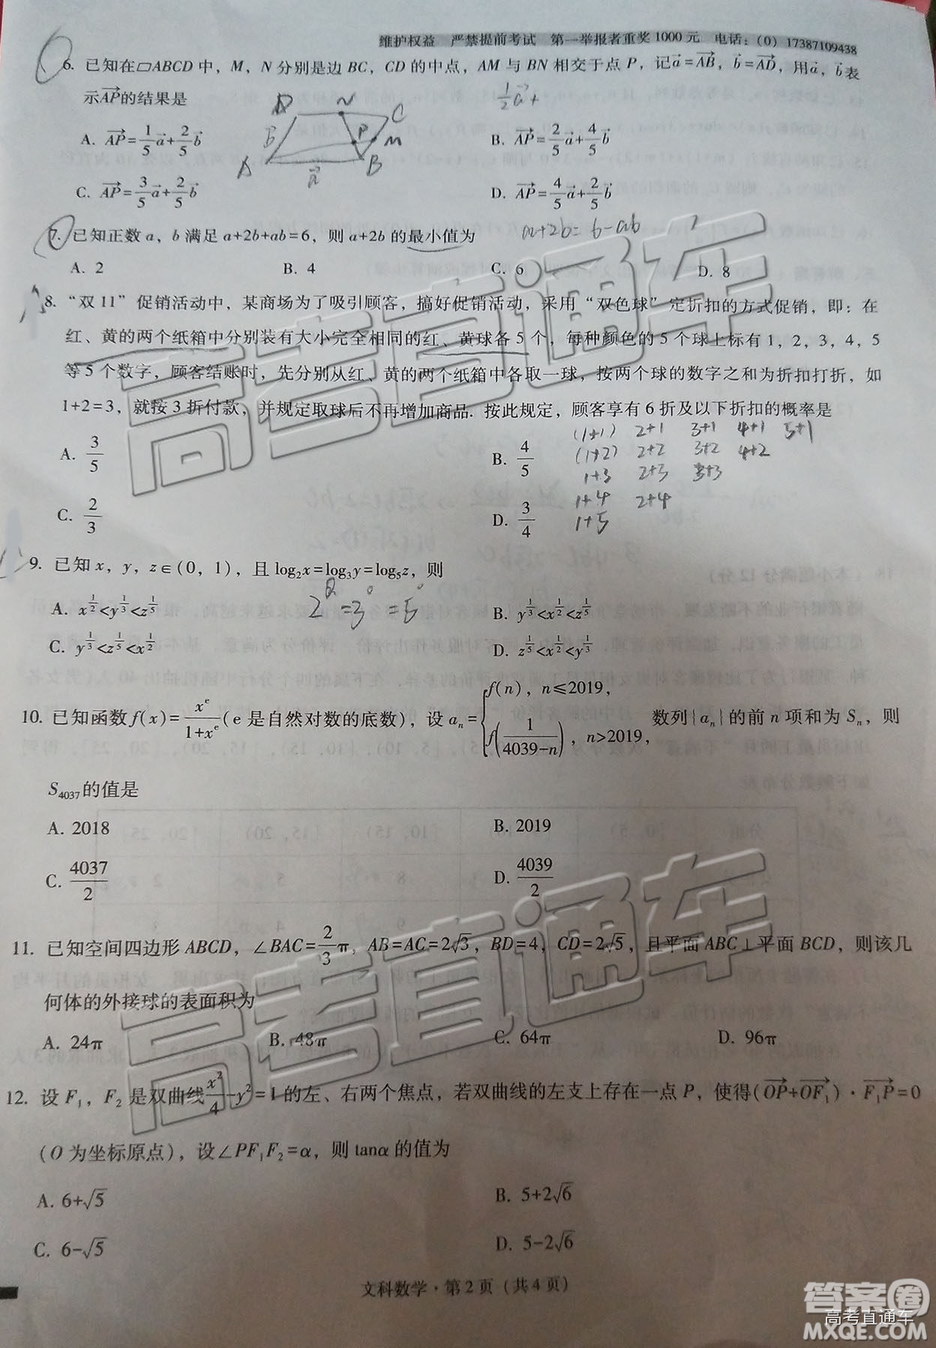 维护权益 严禁提前考试 第一举报者重奖1000元 电话：(0) 17387109438
6. 已知在▱ABCD中，M，N分别是边BC，CD的中点，AM与BN相交于点P，记a⃗=AB⃗，b⃗=AD⃗，用a⃗，b⃗表
示AP⃗的结果是
1/2 a⃗+
A. AP⃗=1/5 a⃗+2/5 b⃗
B. AP⃗=2/5 a⃗+4/5 b⃗
C. AP⃗=3/5 a⃗+2/5 b⃗
D. AP⃗=4/5 a⃗+2/5 b⃗
D N C
b⃗ P M
A a⃗ B
7. 已知正数a，b满足a+2b+ab=6，则a+2b的最小值为
a+2b=6-ab
A. 2 B. 4 C. 6 D. 8
8. “双11”促销活动中，某商场为了吸引顾客，搞好促销活动，采用“双色球”定折扣的方式促销，即：在
红、黄的两个纸箱中分别装有大小完全相同的红、黄球各5个，每种颜色的5个球上标有1，2，3，4，5
等5个数字，顾客结账时，先分别从红、黄的两个纸箱中各取一球，按两个球的数字之和为折扣打折，如
1+2=3，就按3折付款，并规定取球后不再增加商品. 按此规定，顾客享有6折及以下折扣的概率是
A. 3/5
B. 4/5
C. 2/3
D. 3/4
(1+1) 2+1 3+1 4+1 5+1
(1+2) 2+2 3+2 4+2
1+3 2+3 3+3
1+4 2+4
1+5
9. 已知x，y，z∈(0，1)，且log₂x=log₃y=log₅z，则
A. x^(1/2)<y^(1/3)<z^(1/5)
B. y^(1/3)<x^(1/2)<z^(1/5)
C. y^(1/3)<z^(1/5)<x^(1/2)
D. z^(1/5)<x^(1/2)<y^(1/3)
10. 已知函数f(x)=x^e/(1+x^e)(e是自然对数的底数)，设aₙ={f(n)，n≤2019，f(1/(4039-n))，n>2019，数列{aₙ}的前n项和为Sₙ，则
S₄₀₃₇的值是
A. 2018
B. 2019
C. 4037/2
D. 4039/2
11. 已知空间四边形ABCD，∠BAC=2/3π，AB=AC=2√3，BD=4，CD=2√5，且平面ABC⊥平面BCD，则该几
何体的外接球的表面积为
A. 24π B. 48π C. 64π D. 96π
12. 设F₁，F₂是双曲线x²/4-y²=1的左、右两个焦点，若双曲线的左支上存在一点P，使得(OP⃗+OF₁⃗)·F₁P⃗=0
(O为坐标原点)，设∠PF₁F₂=α，则tanα的值为
A. 6+√5
B. 5+2√6
C. 6-√5
D. 5-2√6
文科数学·第2页（共4页）
高考直通车
高考直通车
答案圈
高考直通车
MXQE.COM